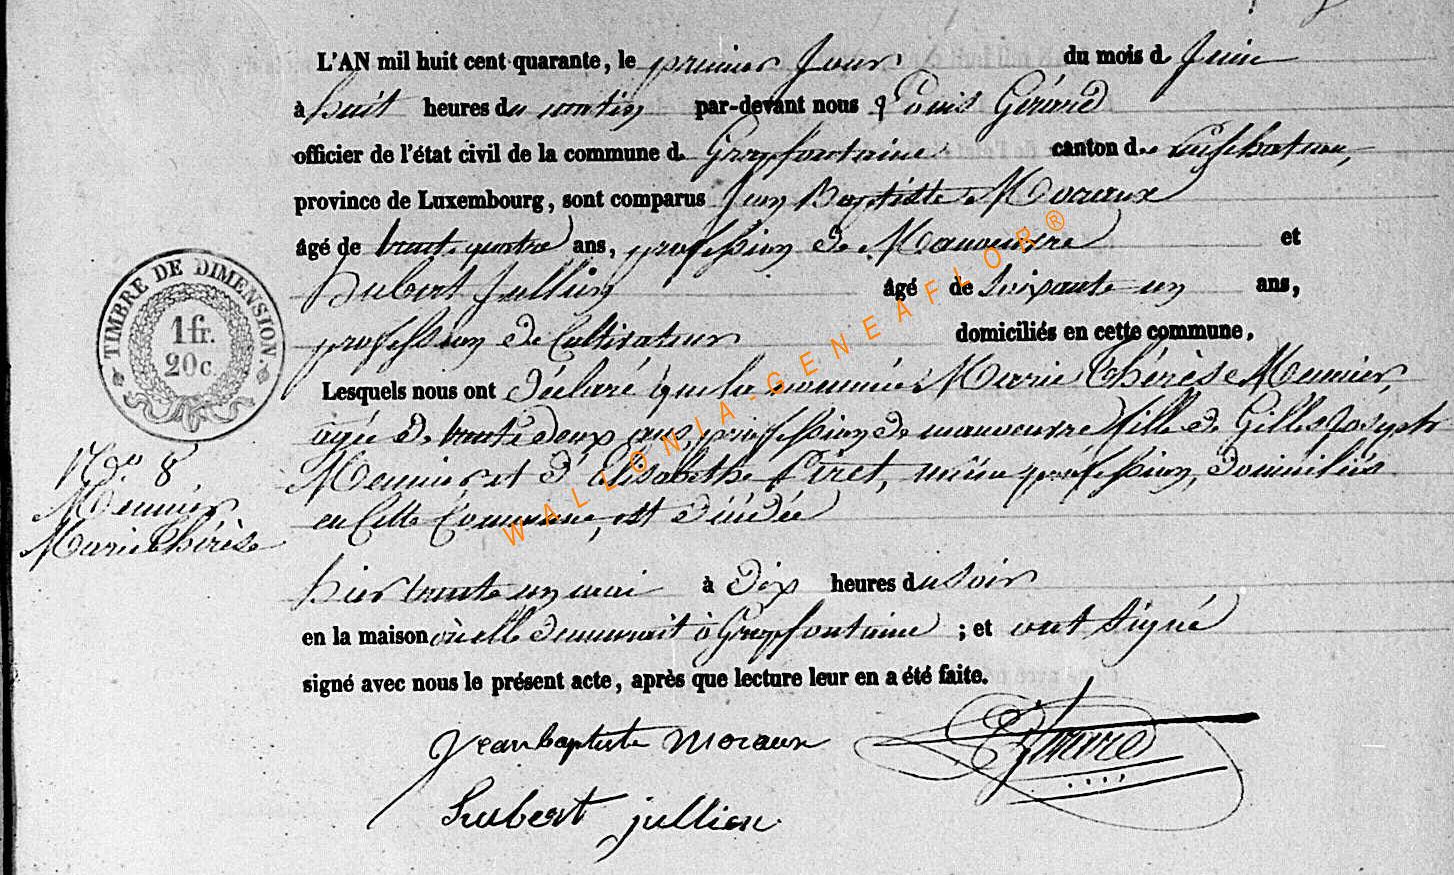 L'AN mil huit cent quarante, le premier Jour du mois de Juin
à huit heures du matin par-devant nous Louis Gérard
officier de l'état civil de la commune de Grapfontaine canton de Neufchateau,
province de Luxembourg, sont comparus Jean Baptiste Moraux
âgé de trente quatre ans, profession de Manoeuvre et
Hubert Jullien âgé de Soixante un ans,
profession de Cultivateur domiciliés en cette commune,
Lesquels nous ont Déclaré que la nommée Marie Thérèse Meunier,
agée de trente deux ans, profession de manoeuvre fille de Gilles Joseph
Meunier et d'Elisabethe Piret, même profession, domiciliés
en Cette Commune, est décédée
hier trente un mai à Dix heures du Soir
en la maison où elle demeurait à Grapfontaine ; et ont Signé
signé avec nous le présent acte, après que lecture leur en a été faite.
Jean baptiste Moraux
Gérard
hubert jullien
TIMBRE DE DIMENSION.
1 fr.
20c.
N° 8
Meunier
Marie Thérèse
WALLONIA-GENEAFLOR®